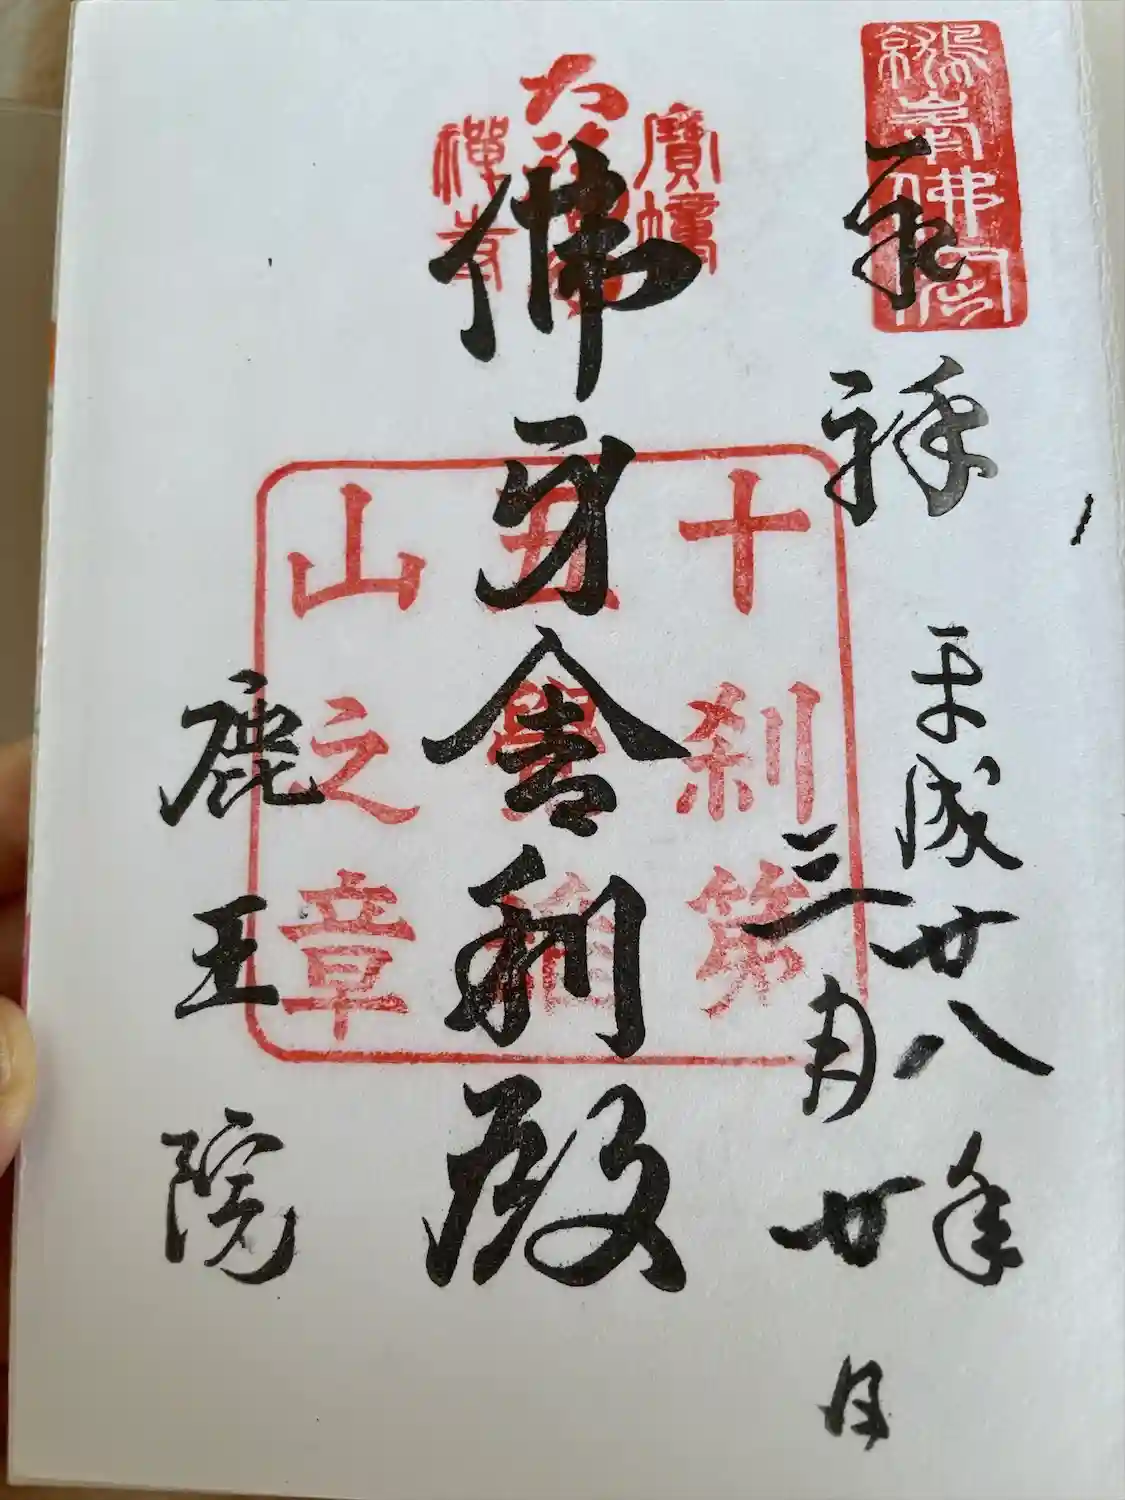 平成廿八年
三月廿日
寶幢
大福田
禪寺
佛牙舎利殿
十刹第
五覺雄
山之章
鹿王院